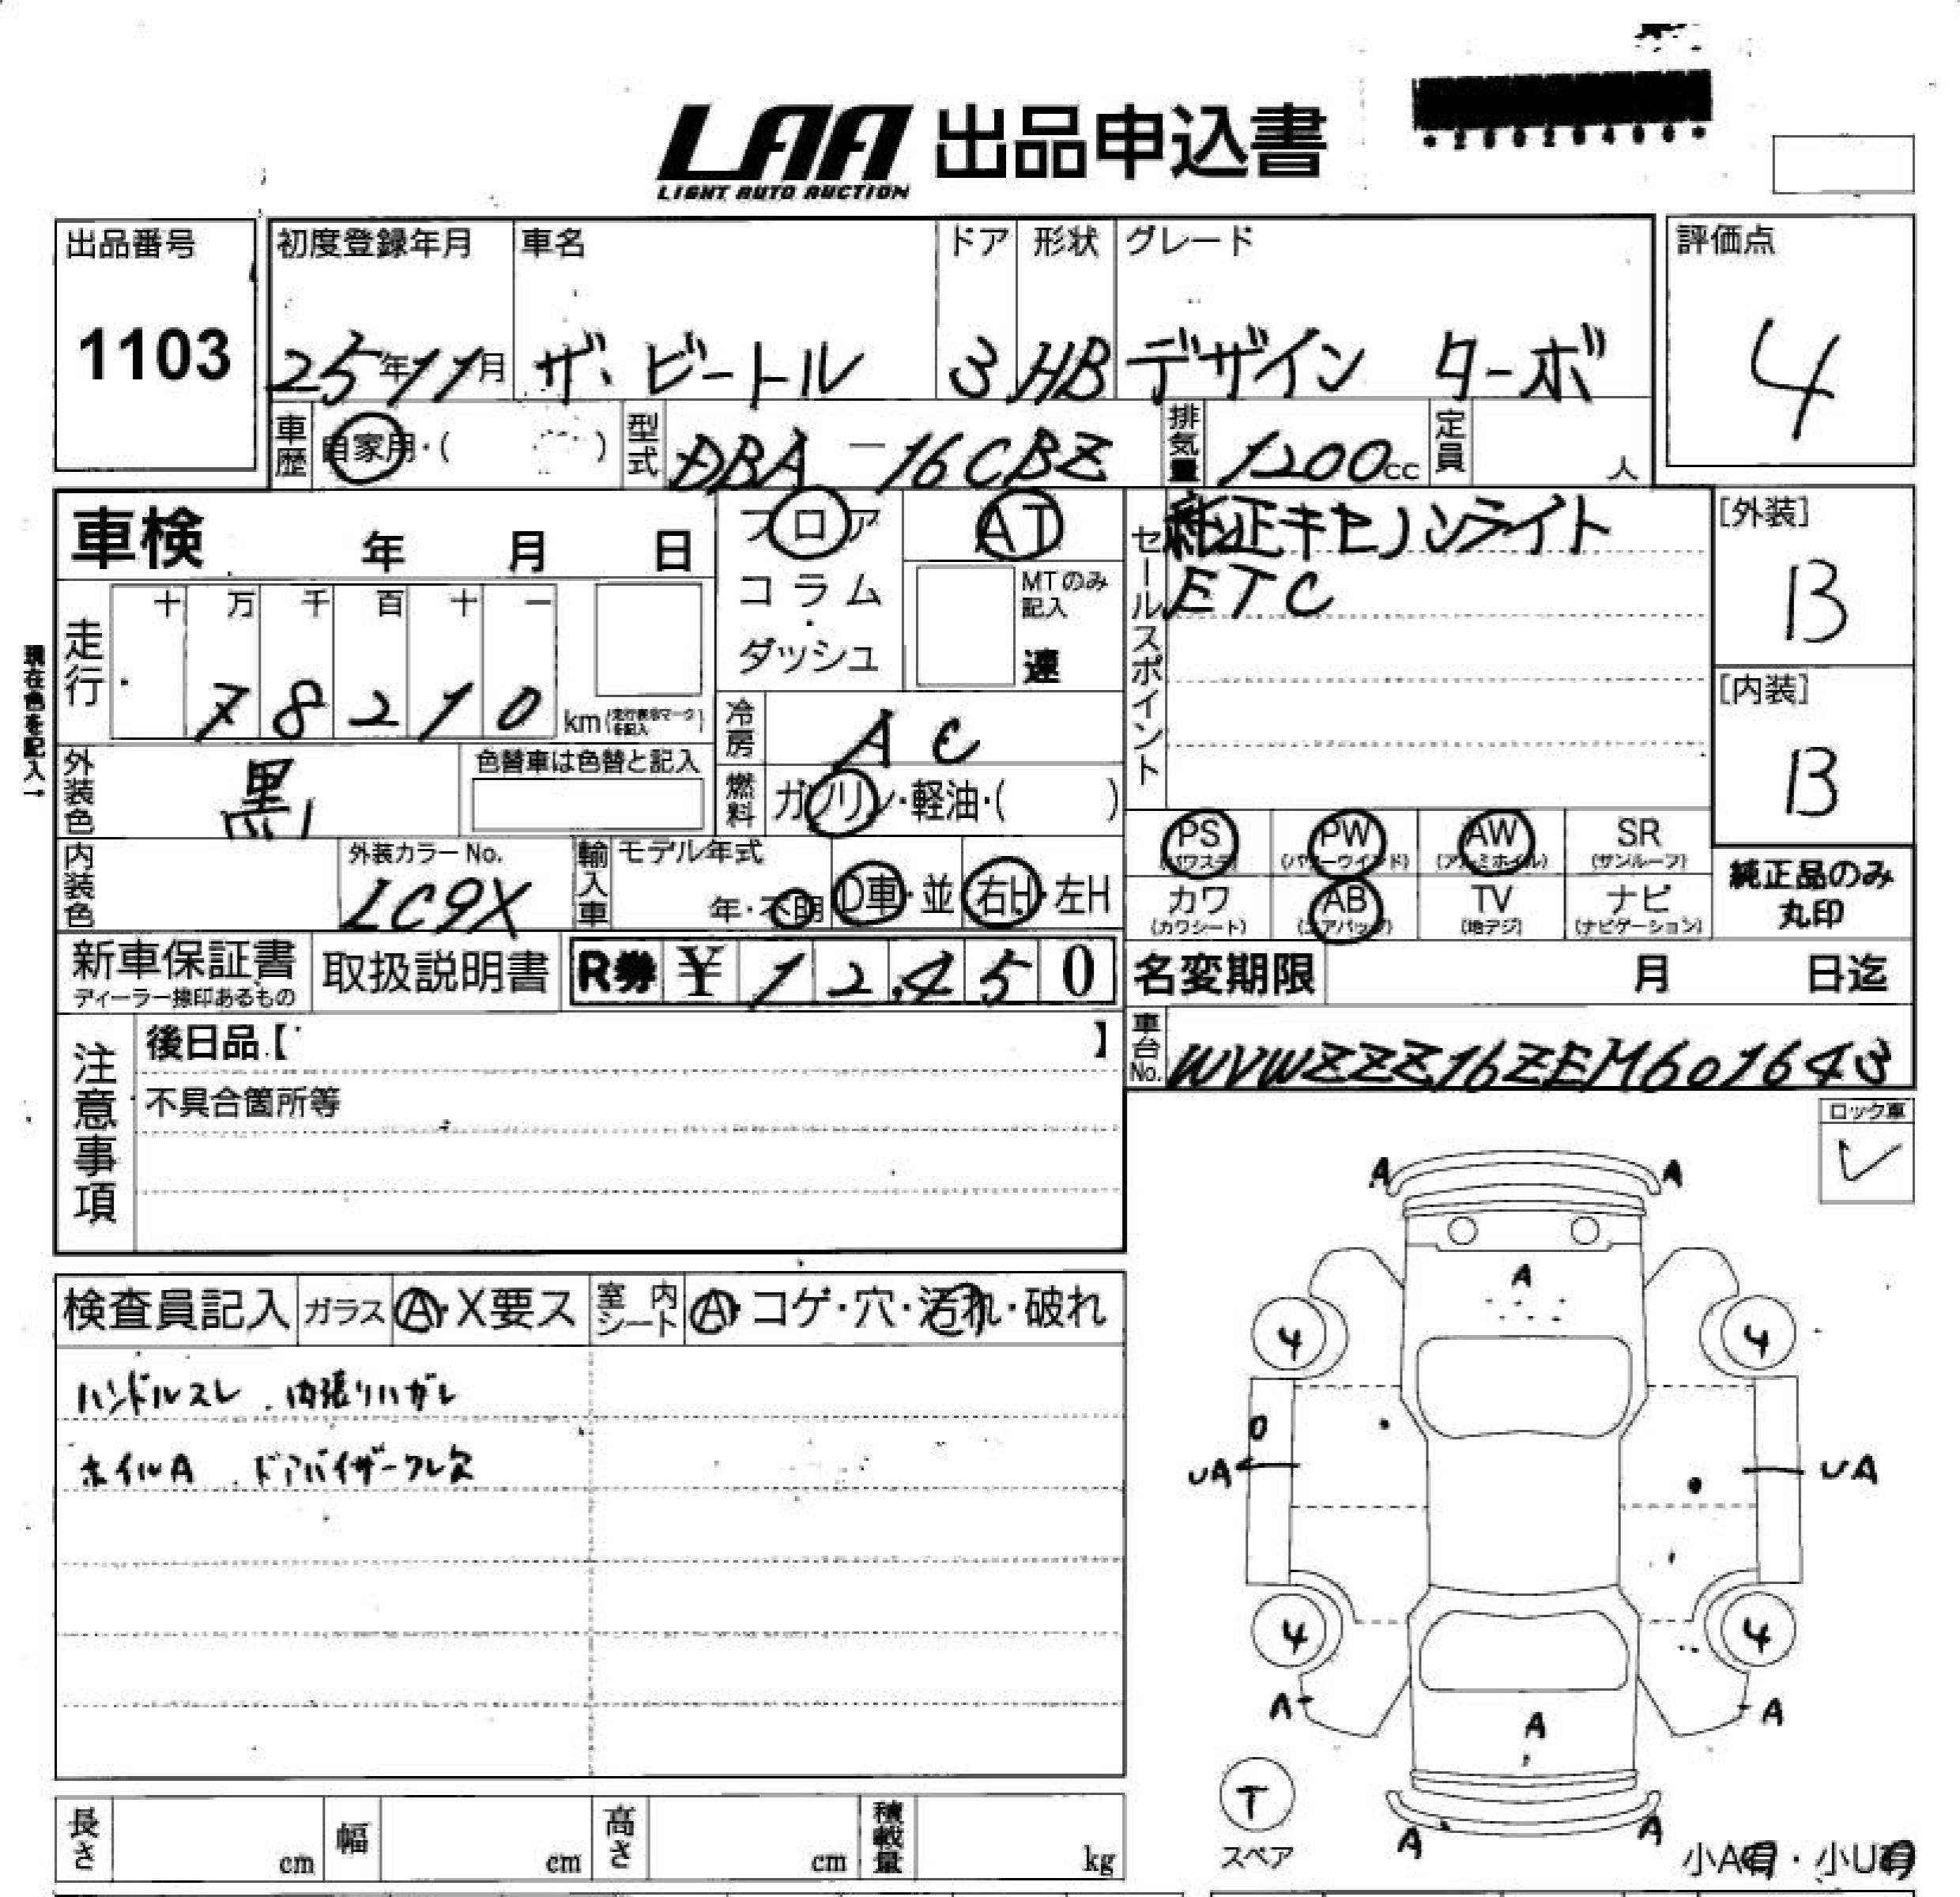 LAA 出品申込書
LIGHT AUTO AUCTION
出品番号
1103
初度登録年月 車名 ドア 形状 グレード
25年11月 ザ・ビートル 3 HB デザイン ターボ
評価点
4
車歴 自家用・( ) 型式 DBA-16CBZ 排気量 1200cc 定員 人
車検 年 月 日
フロア
コラム
・
ダッシュ
AT
MTのみ
記入
速
セールスポイント
純正キセノンライト
ETC
[外装]
B
[内装]
B
現在色を記入↑
走行
十 万 千 百 十 一
78210 km(走行表音マーク)を記入
冷房 AC
外装色 黒 色替車は色替と記入
燃料 ガソリン・軽油・( )
内装色 外装カラーNo. LC9X
輸入車 モデル年式 年・不明 D車・並 右H・左H
PS PW AW SR
(パワステ) (パワーウインド) (アルミホイル) (サンルーフ)
カワ AB TV ナビ
(カワシート) (エアバッグ) (地デジ) (ナビゲーション)
純正品のみ
丸印
新車保証書
ディーラー捺印あるもの
取扱説明書 R券 ¥ 12,450
名変期限 月 日迄
車台No. WVWZZZ16ZEM601643
注意事項
後日品【 】
不具合箇所等
ロック車
✓
検査員記入 ガラス A・X要ス 室内シート A・コゲ・穴・汚れ・破れ
ハンドルスレ . 内張りハガレ
ホイルA . ドアバイザーワレ欠
A A
A
4 4
UA UA
4 4
A A
A
T
スペア
A A
小A有・小U有
長さ cm 幅 cm 高さ cm 積載量 kg